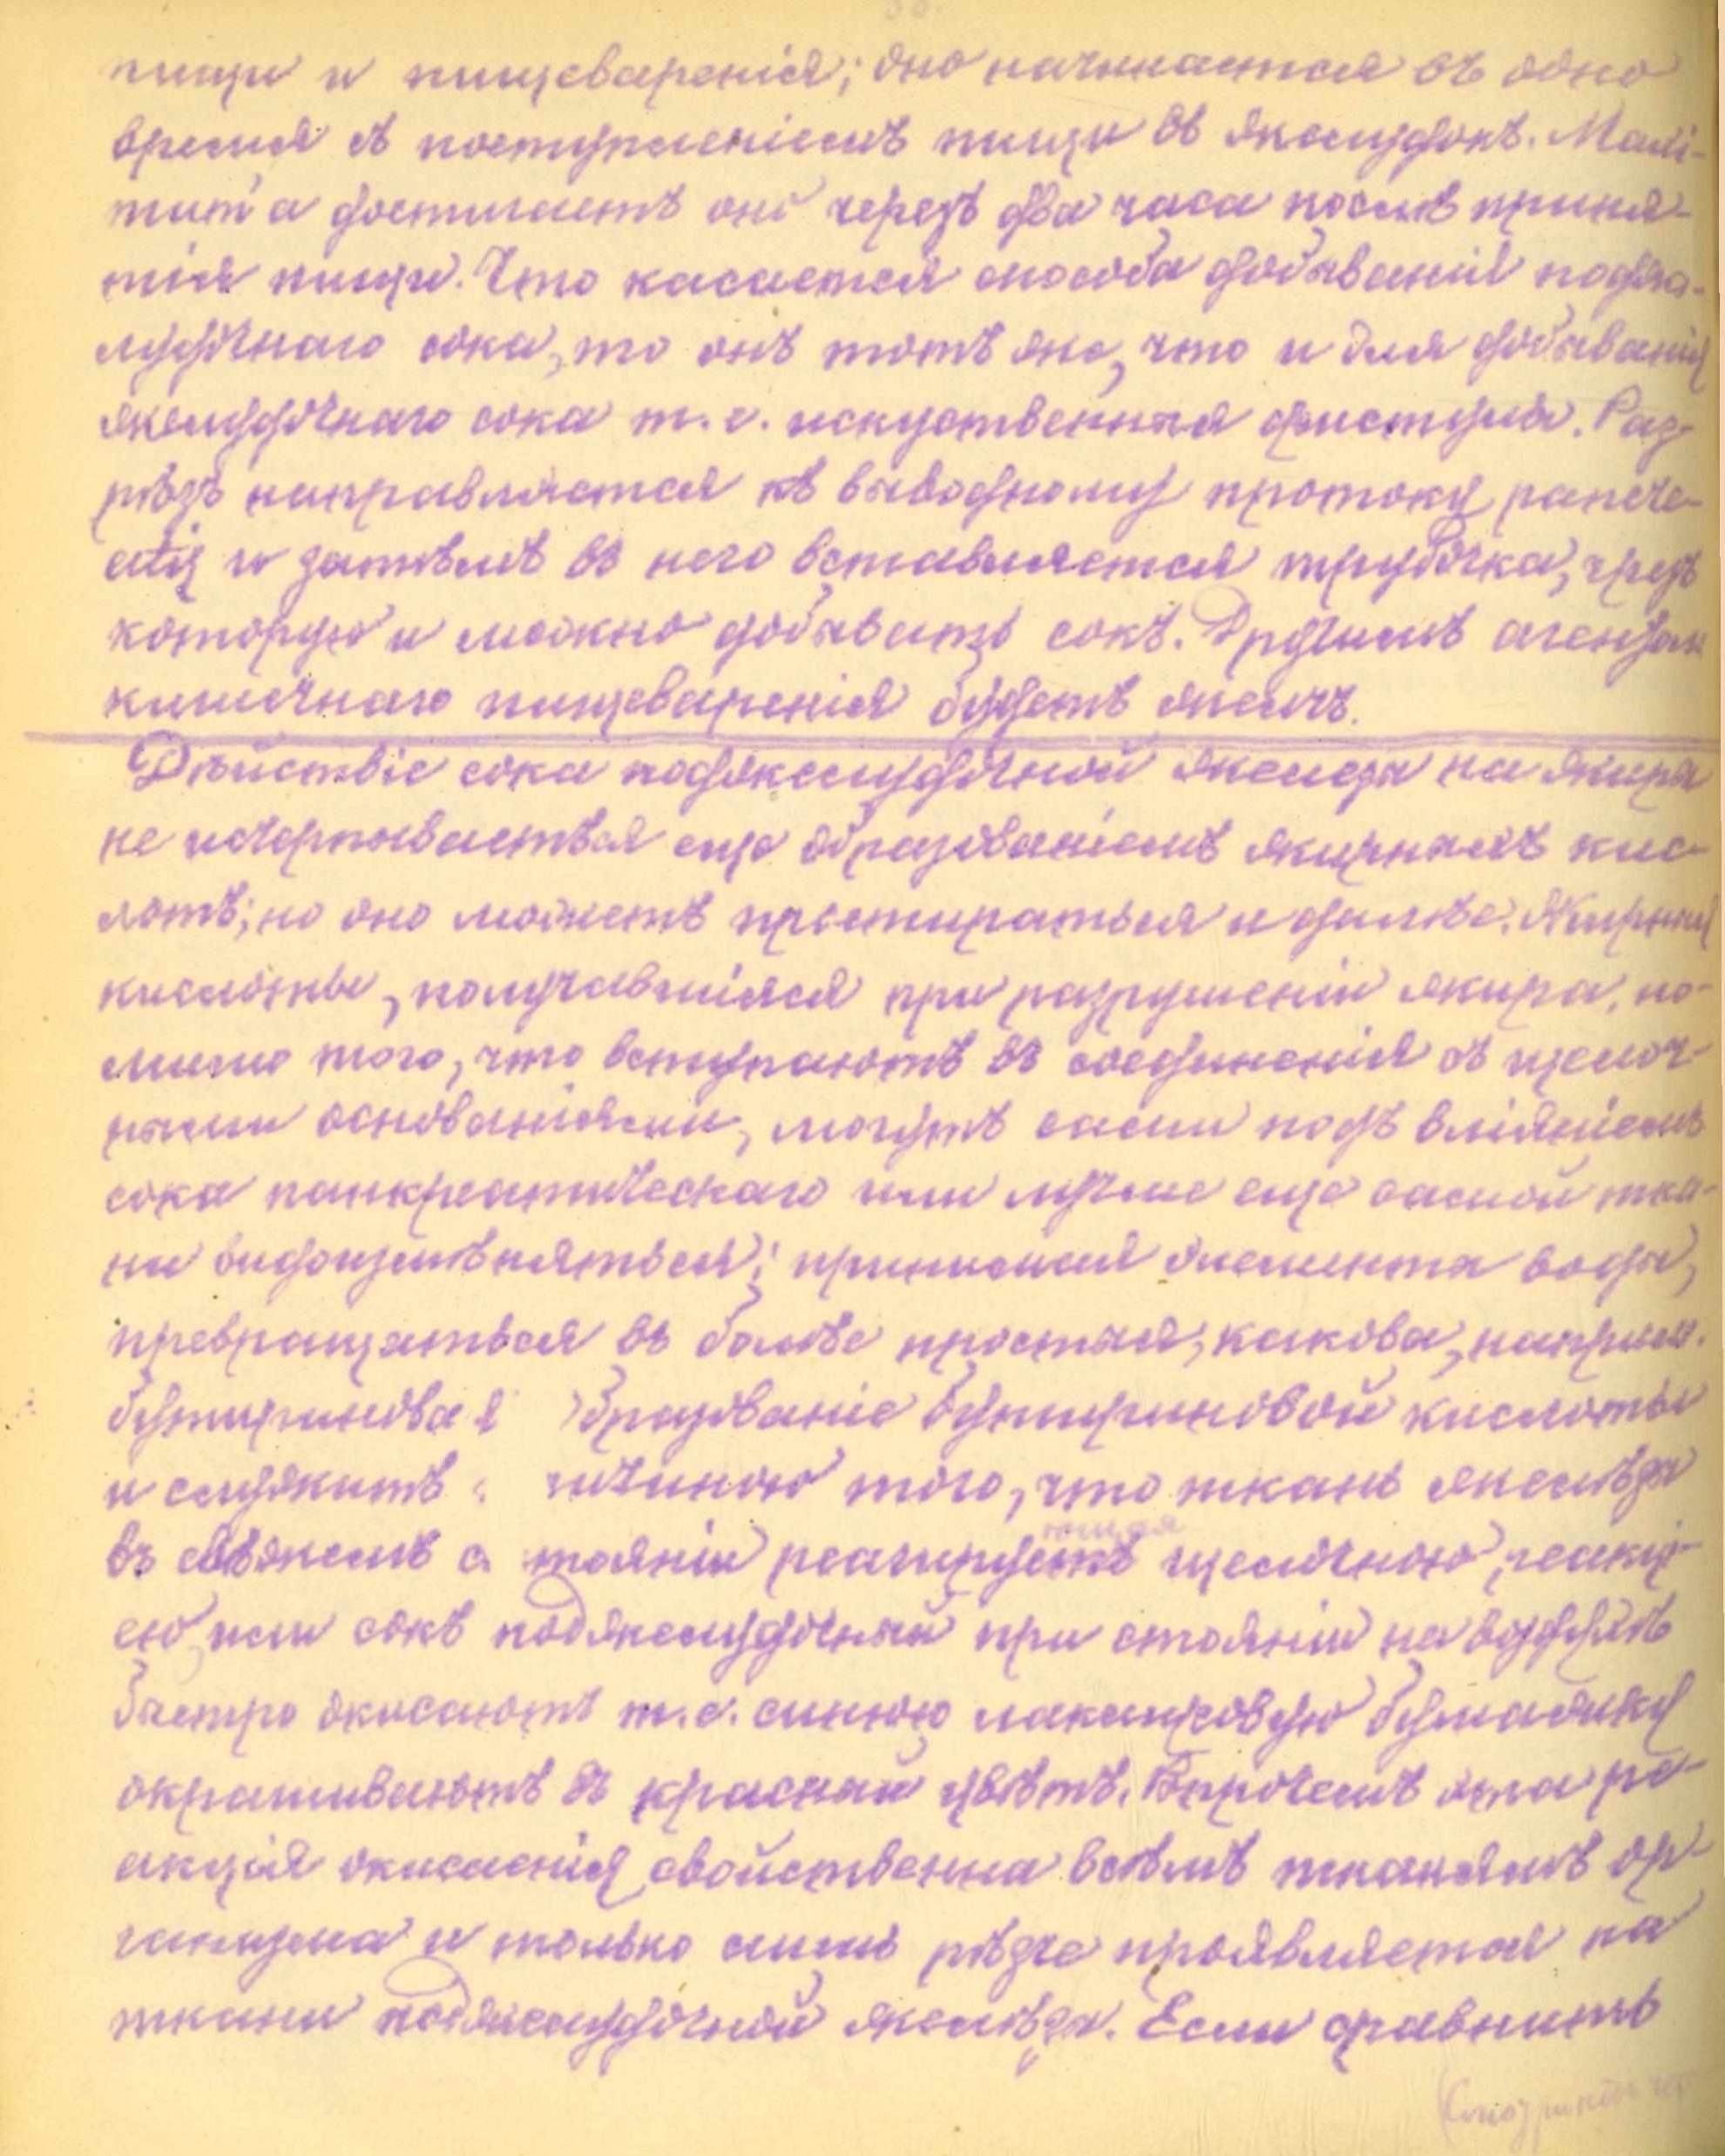 пищи и пищеваренія; оно начинается въ одно
время съ поступленіемъ пищи въ желудокъ. Maxi-
mum'a достигаетъ оно черезъ два часа послѣ приня-
тія пищи. Что касается способа добыванія поджел-
лудочнаго сока, то онъ тотъ же, что и для добыванія
желудочнаго сока т. е. искуственная фистула. Раз-
рѣзъ направляется къ выводному протоку pancre-
atis и затѣмъ въ него вставляется трубочка, чрезъ
которую и можно добывать сокъ. Другимъ агентом
кишечнаго пищеваренія будетъ желчь.
Дѣйствіе сока поджелудочной железы на жиры
не исчерпывается еще образованіемъ жирныхъ кис-
лотъ; но оно можетъ простираться и далѣе. Жирныя
кислоты, получавшіяся при разрушеніи жира, по-
мимо того, что вступаютъ въ соединенія съ щелоч-
ными основаніями, могутъ сами подъ вліяніемъ
сока панкреатическаго или лучше еще самой тка-
ни видоизмѣняться; принимая элементы воды,
превращаться въ болѣе простыя, какова, наприм.
бутириновая бразованіе бутириновой кислоты
и служитъ чиною того, что ткань желѣзы
въ свѣжемъ с тояніи реагируетъ щелочною реакці-
ющая
ею, или сокъ поджелудочный при стояніи на воздухѣ
быстро окисаютъ т. е. синюю лакмусовую бумажку
окрашиваютъ въ красный цвѣтъ. Впрочемъ эта ре-
акція окисленія свойственна всѣмъ тканямъ ор-
ганизма и только лишь рѣзче проявляется на
ткани поджелудочной желѣзы. Если сравнить